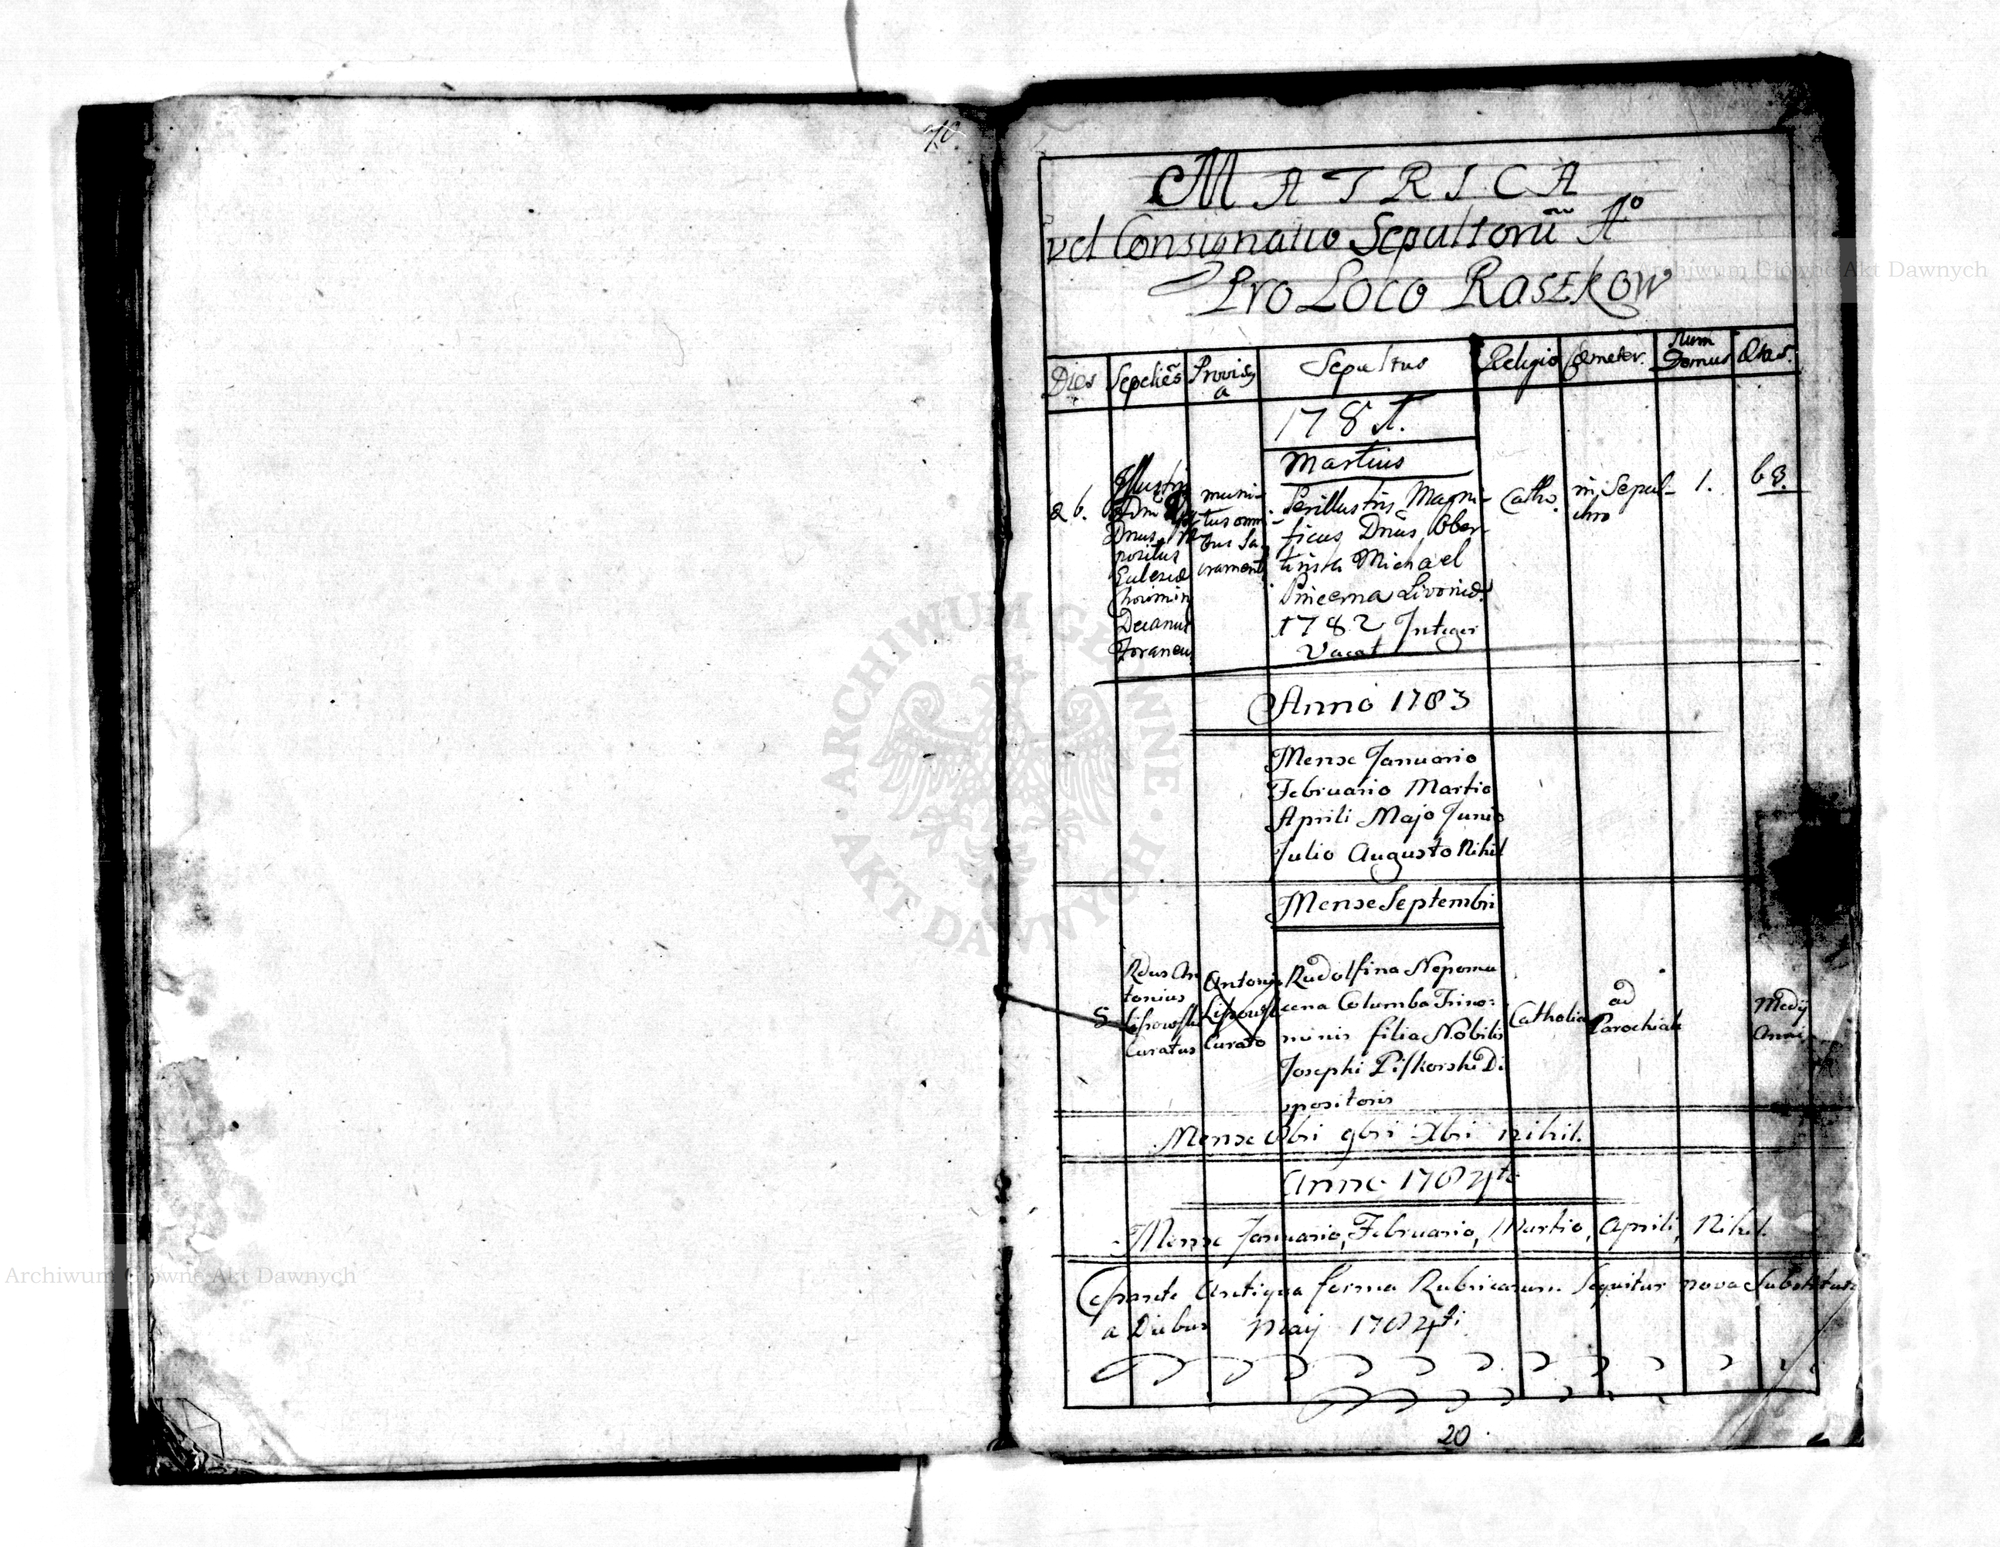 70.
MATRICA
vel Consignatio Sepultorū Aº
Pro Loco Raszkow
Dies
Sepeliēs
Provisq
a
Sepultus
Religio
Cæmeter.
Num
Domus
Ætas.
178
Martius
26.
Illustris
Dnus
positus
Eclesiæ
Decanus
Foraneus
muni-
tus omni-
bus Sa-
crament
Perillustris Magni-
ficus Dnus Ober-
tinski Michael
Pincerna Livoniæ.
1782 Integer
Vacat
Catho.
in Sepul-
chro
1.
63.
Anno 1783
Mense Januario
Februario Martio
Aprili Majo Junio
Julio Augusto Nihil
Mense Septembri
5
Rdus An
tonius
Curatus
Antonio
Curato
Rudolfina Nepomu
cena Columba Trino-
minis filia Nobilis
Josephi Piskorski Di
spositoris
Catholia
ad
Parochial
Medij
Anni
Mense 8bri 9bri Xbri nihil.
Anno 1784to
Mense Januario, Februario, Martio, Aprili, Nihil.
Cessante Antiqua forma Rubricarum Sequitur nova Substituta
a Diebus Maij 1784ti
20
Archiwum Główne Akt Dawnych
Archiwum Główne Akt Dawnych
ARCHIWUM GŁÓWNE · AKT DAWNYCH ·